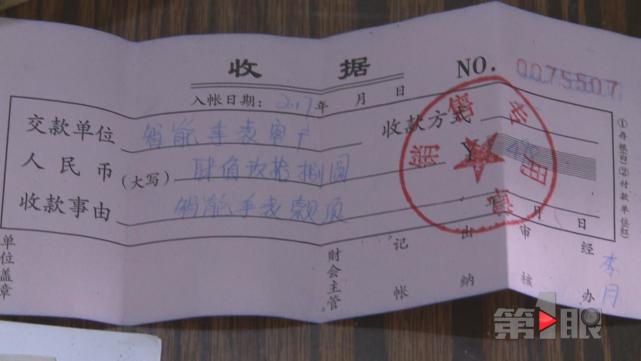 收 据 NO. 0075507
入帐日期: 2017年 月 日
交款单位 智能手表客户 收款方式
人民币(大写) 肆佰玖拾捌圆 ¥
收款事由 智能手表款项 月 日
单位盖章 财会主管 记帐 出纳 审核 经办 李月
①存根(白)②付款单位(红)
销售专用章
第1眼